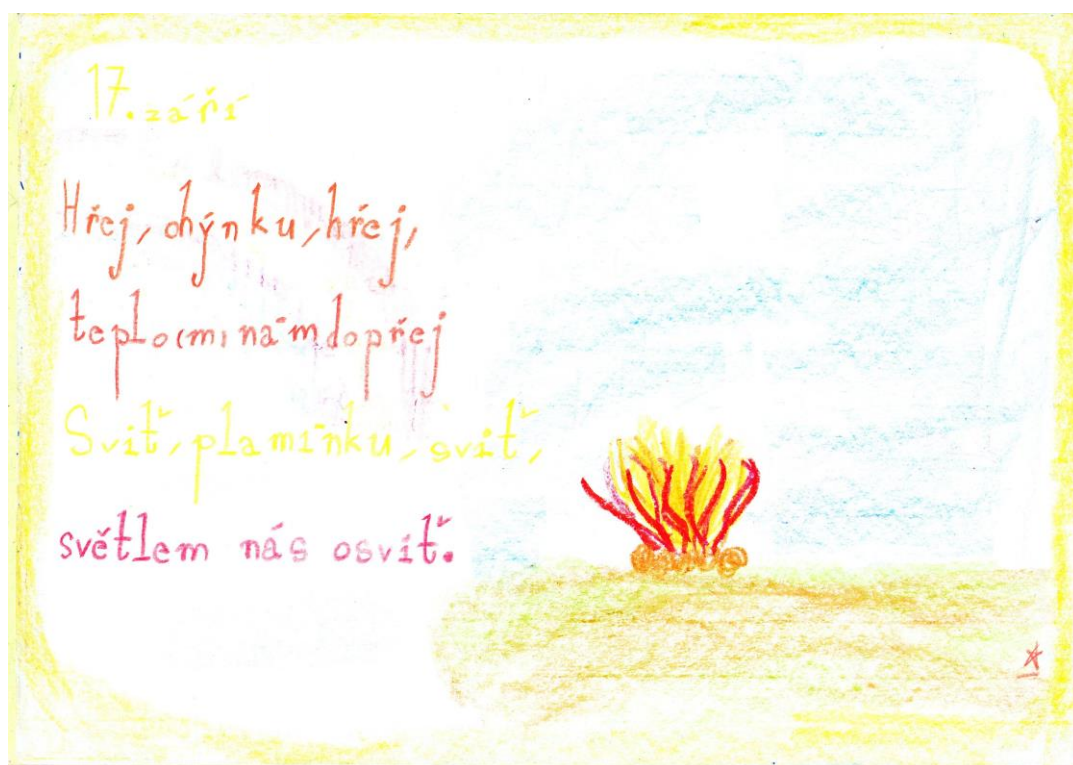 17. září
Hřej, ohýnku, hřej,
teplo(m) nám dopřej
Sviť, plamínku, sviť,
světlem nás osviť.